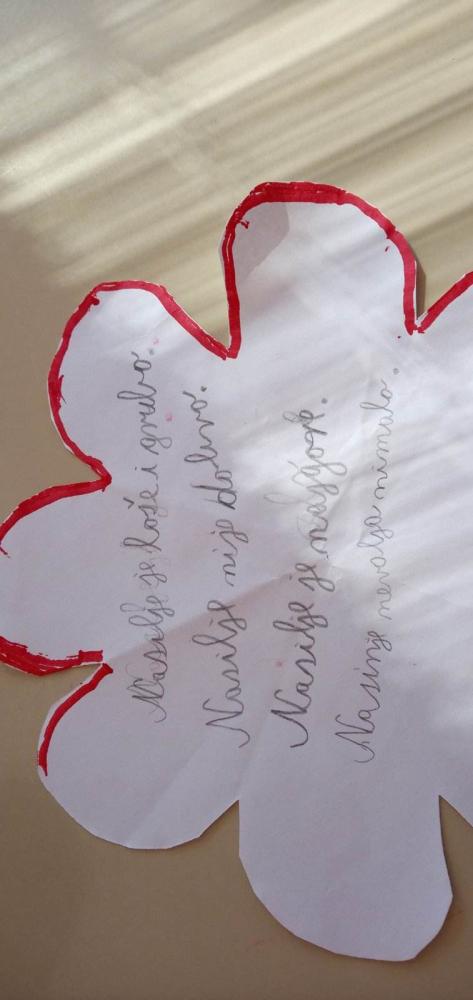 Nasilje je loše i grubo.
Nasilje nije dobro.
Nasilje je najgore.
Nasinje nevalja nimalo.